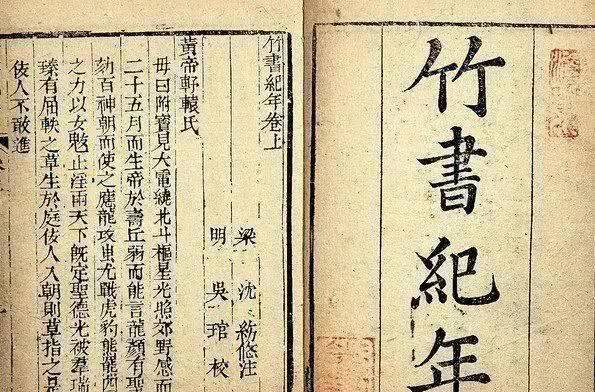 竹書紀年
竹書紀年卷上
梁 沈 約 注
明 吳 琯 校
黃帝軒轅氏
母曰附寶見大電繞北斗樞星光照郊野感而
二十五月而生帝於壽丘弱而能言龍顏有聖
劾百神朝而使之應龍攻蚩尤戰虎豹熊羆四
之力以女魃止淫雨天下既定聖德光被羣瑞
臻有屈軼之草生於庭佞人入朝則草指之是
佞人不敢進